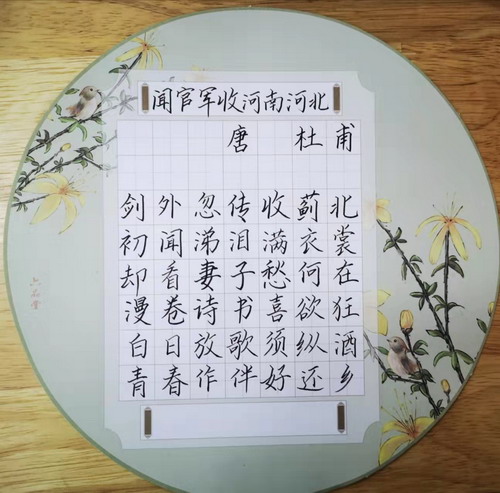 闻官军收河南河北
唐 杜甫
剑外忽传收蓟北
初闻涕泪满衣裳
却看妻子愁何在
漫卷诗书喜欲狂
白日放歌须纵酒
青春作伴好还乡